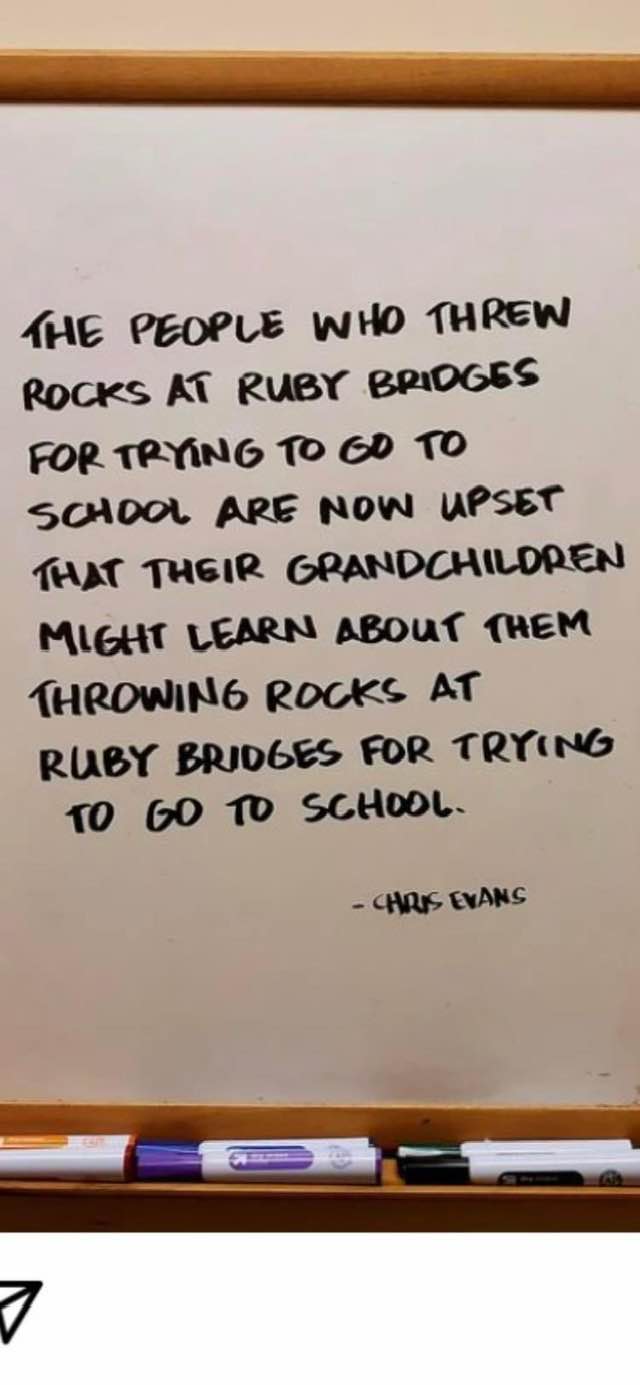 THE PEOPLE WHO THREW
ROCKS AT RUBY BRIDGES
FOR TRYING TO GO TO
SCHOOL ARE NOW UPSET
THAT THEIR GRANDCHILDREN
MIGHT LEARN ABOUT THEM
THROWING ROCKS AT
RUBY BRIDGES FOR TRYING
TO GO TO SCHOOL.
- CHRIS EVANS